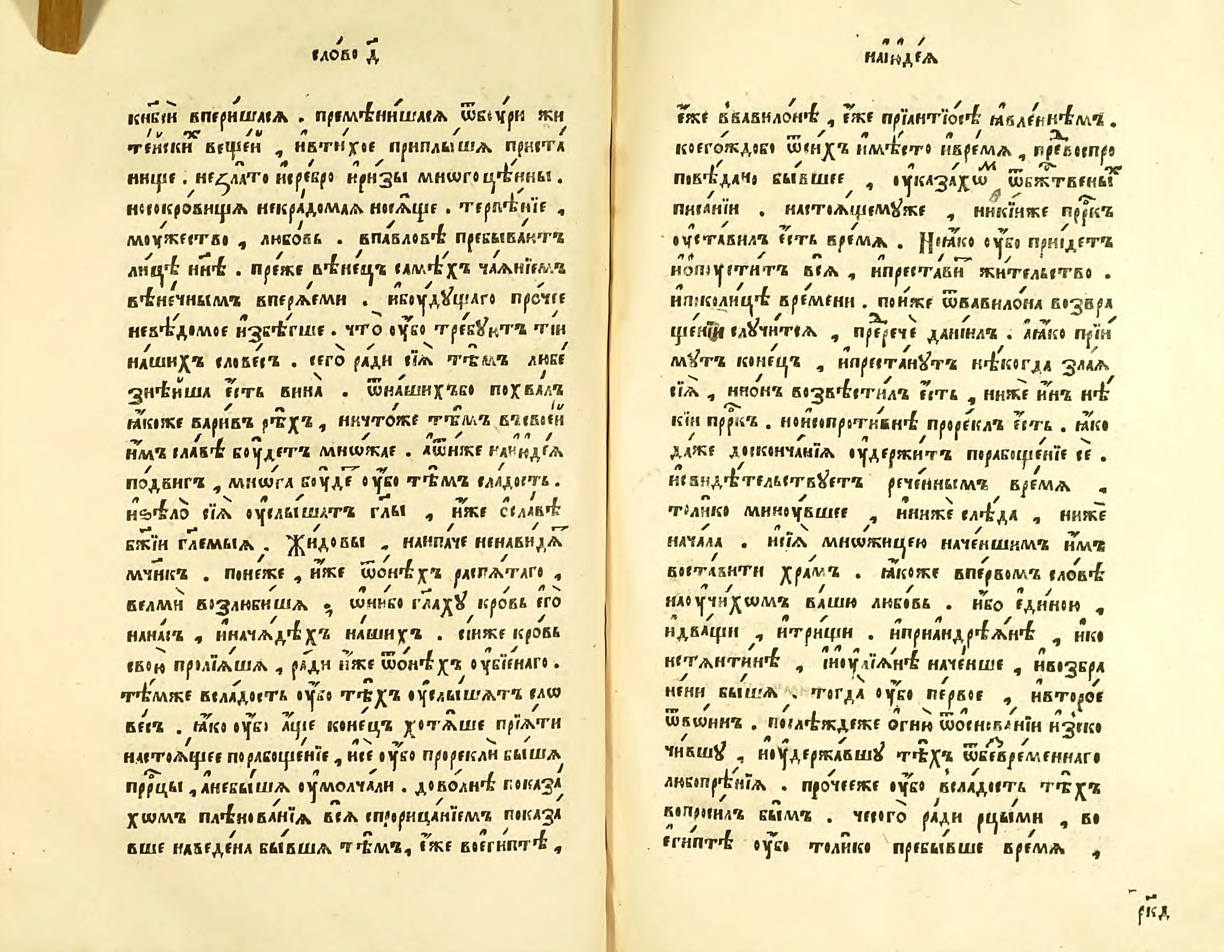 сло́во д҃
кнбе́й впери́шасѧ . премѣни́шасѧ ѿбѹ́ри жи
те́йскиⷯ веще́й , ивти́хое приплы́шѧ приста́
нище . незла́то исребро̀ и҆ри́зы мнѡгоцѣ́нны .
носокро́вищѧ некра́домаѧ носѧ́ще . терпѣ́нїе ,
мѹ́жество , любо́вь . впа́вловѣ пребыва́ютъ
лицѣ̀ нн҃ѣ . пре́же вѣне́цъ самѣ́хъ ча́ѧнїемъ
вѣне́чнымъ вперѧ́еми . ибѹ́дꙋщаго про́чее
невѣ́домое избѣ́гше . что̀ ѹ҆́бо тре́бꙋютъ ті́и
на́шихъ слове́съ . сего̀ ра́ди сїѧ̀ тѣ́мъ любе́
знѣ́йша е҆́сть вина̀ . ѿна́шихъбо похва́лъ
ꙗ҆́коже вари́въ рѣ́хъ , ничто́же тѣ́мъ въсвое́й
и҆́мъ сла́вѣ бѹ́детъ мно́жае . а҆ѿни́же наі҆ѹде́ѧ
по́двигъ , мнѡ́га бѹ́деⷮ ѹ҆́бо тѣ́мъ сла́дость .
иѕѣлѡ̀ сїѧ̀ ѹ҆слы́шатъ гл҃ы , и҆́же ѡ҆сла́вѣ
бж҃їи гл҃емыѧ . Жи́довы , наипа́че ненави́дѧⷮ
мч҃никъ . поне́же , и҆́же ѿѻ҆нѣ́хъ распѧ́таго ,
велмѝ возлюби́шѧ , ѻ҆ни́бо гл҃ахꙋ кро́вь е҆го̀
нана́съ , инача́дѣхъ на́шихъ . сі́иже кро́вь
свою̀ пролїѧ́шѧ , ра́ди и҆́же ѿѻ҆нѣ́хъ ѹ҆бїе́наго .
тѣ́мже всла́дость ѹ҆́бо тѣ́хъ ѹ҆слы́шатъ сло
ве́съ . ꙗ҆́ко ѹ҆́бо а҆́ще коне́цъ хотѧ́ше прїѧ́ти
настоѧ́щее порабоще́нїе , исѐ ѹ҆́бо прореклѝ бы́шѧ
прⷪ҇рцы , анебы́шѧ ѹ҆молча́ли . дово́лнѣ показа́
хомъ плѣнова́нїѧ всѧ̀ спрорица́нїемъ показа́
вше наведе́на бы́вшѧ тѣ́мъ , е҆́же воегѵ́птѣ ,
наі҆ѹде́ѧ
е҆́же ввавило́нѣ , е҆́же прїа҆нтїо́сѣ ꙗ҆вле́ннѣмъ .
коего́ждобо ѿси́хъ имѣ́сто ивре́мѧ , превоспро
повѣ́дано бы́вшее , ѹ҆каза́хѡⷨ ѿбжⷭ҇твеныⷯ
писа́нїи . настоѧ́щемꙋже , никі́иже прⷪ҇ркъ
ѹ҆ста́вилъ е҆́сть вре́мѧ . Ноꙗ҆́ко ѹ҆́бо прїи́детъ
иѡ҆пꙋсти́тъ всѧ̀ , ипреста́виⷮ жи́тельство .
ипоколи́цѣ вре́мени . по́йже ѿвавило́на возвра
ще́нїи слꙋчи́тсѧ , преⷣречѐ данїи́лъ . аꙗ҆́ко прїи́
мꙋтъ коне́цъ , ипреста́нꙋтъ нѣ́когда зла́ѧ
сїѧ̀ , нио́нъ возвѣсти́лъ е҆́сть , ниже́ и҆́нъ нѣ́
кїи прⷪ҇ркъ . ноисопроти́внѣ проре́клъ е҆́сть . ꙗ҆́ко
да́же досконча́нїѧ ѹ҆держи́тъ порабоще́нїе сѐ .
исвидѣ́тельствꙋетъ рече́ннымъ вре́мѧ ,
толи́ко минꙋ́вшее , ини́же слѣ́да , ниже́
нача́ла . исїѧ̀ мно́жицею наче́ншимъ и҆́мъ
воста́вити хра́мъ . ꙗ҆́коже впе́рвомъ сло́вѣ
наѹ҆чи́хомъ ва́шю любо́вь . и҆́бо е҆ди́ною ,
идва́щи , итри́щи . иприандрѣѧ́нѣ , ико
нстѧнти́нѣ , иіѹлїѧ́нѣ наче́нше , ивозбра
не́ни бы́шѧ . тогда̀ ѹ҆́бо пе́рвое , ивторо́е
ѿво́инъ . послѣ́ждеже ѻ҆гню̀ ѿоснова́нїи изско
чи́вшꙋ , иѹ҆держа́вшꙋ тѣ́хъ ѿбевре́меннаго
любопрѣ́нїѧ . про́чееже ѹ҆́бо всла́дость тѣ́хъ
вопроси́лъ бы́мъ . чесого̀ ра́ди рцы́ми , во
егѵ́птѣ ѹ҆́бо толи́ко пребы́вше вре́мѧ ,
рк҃д